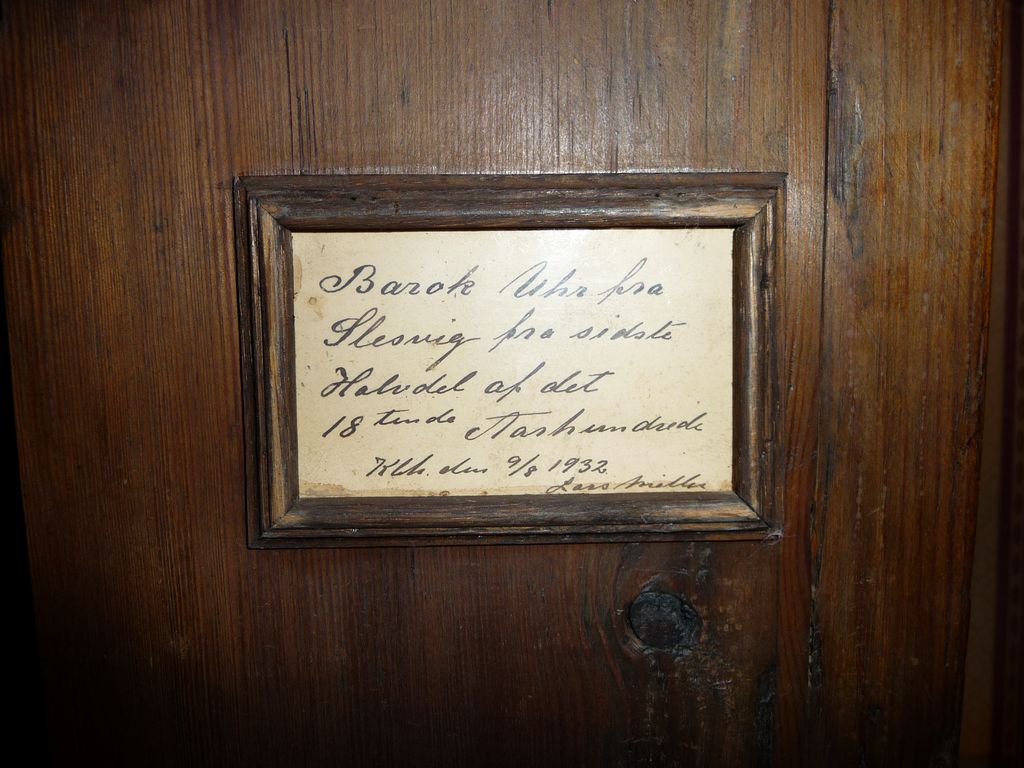 Barok Uhr fra
Slesvig fra sidste
Halvdel af det
18 tende Aarhundrede
Kbh. den 9/8 1932
Lars Møller